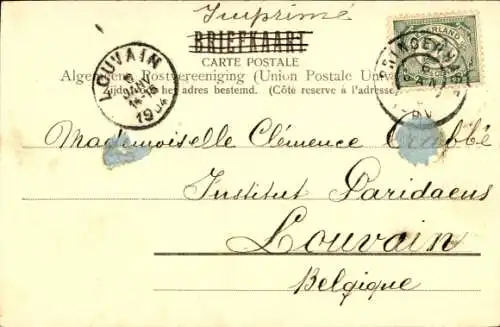 Imprimé
BRIEFKAART
CARTE POSTALE
Algemeene Postvereeniging (Union Postale
Zijde voor het adres bestemd. (Côté reservé à l'adresse)
LOUVAIN
1904
Mademoiselle Clémence
Institut Paridaens
Louvain
Belgique